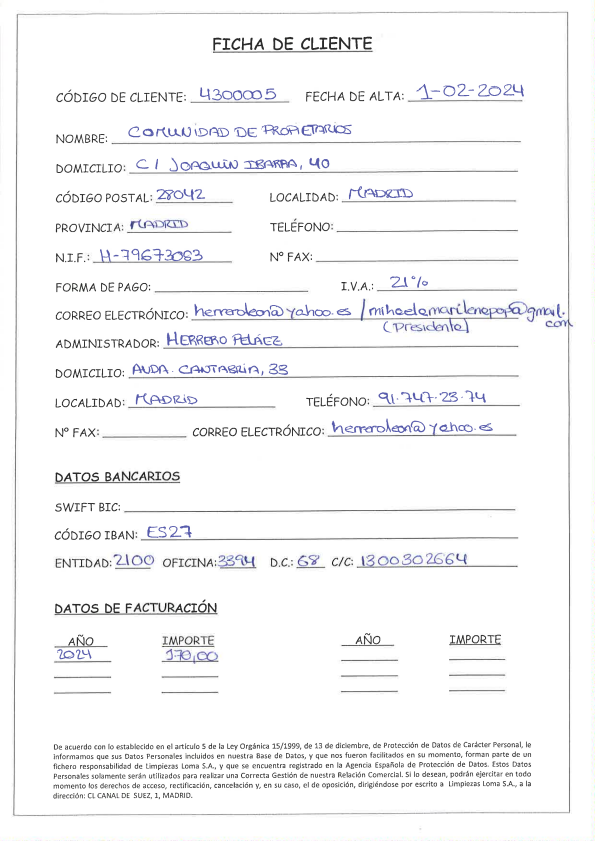 FICHA DE CLIENTE
CÓDIGO DE CLIENTE: 4300005 FECHA DE ALTA: 1-02-2024
NOMBRE: COMUNIDAD DE PROPIETARIOS
DOMICILIO: C/ JOAQUÍN IBARRA, 40
CÓDIGO POSTAL: 28042 LOCALIDAD: MADRID
PROVINCIA: MADRID TELÉFONO:
N.I.F.: H-79673063 Nº FAX:
FORMA DE PAGO: I.V.A.: 21%
CORREO ELECTRÓNICO: herreroleon@yahoo.es / mihaelamarilenapopa@gmail.com
(Presidenta)
ADMINISTRADOR: HERRERO PELÁEZ
DOMICILIO: AVDA. CANTABRIA, 33
LOCALIDAD: MADRID TELÉFONO: 91.747.23.74
Nº FAX: CORREO ELECTRÓNICO: herreroleon@yahoo.es
DATOS BANCARIOS
SWIFT BIC:
CÓDIGO IBAN: ES27
ENTIDAD: 2100 OFICINA: 3394 D.C.: 68 C/C: 1300302664
DATOS DE FACTURACIÓN
AÑO IMPORTE AÑO IMPORTE
2024 170,00
De acuerdo con lo establecido en el artículo 5 de la Ley Orgánica 15/1999, de 13 de diciembre, de Protección de Datos de Carácter Personal, le
informamos que sus Datos Personales incluidos en nuestra Base de Datos, y que nos fueron facilitados en su momento, forman parte de un
fichero responsabilidad de Limpiezas Loma S.A., y que se encuentra registrado en la Agencia Española de Protección de Datos. Estos Datos
Personales solamente serán utilizados para realizar una Correcta Gestión de nuestra Relación Comercial. Si lo desean, podrán ejercitar en todo
momento los derechos de acceso, rectificación, cancelación y, en su caso, el de oposición, dirigiéndose por escrito a Limpiezas Loma S.A., a la
dirección: CL CANAL DE SUEZ, 1, MADRID.